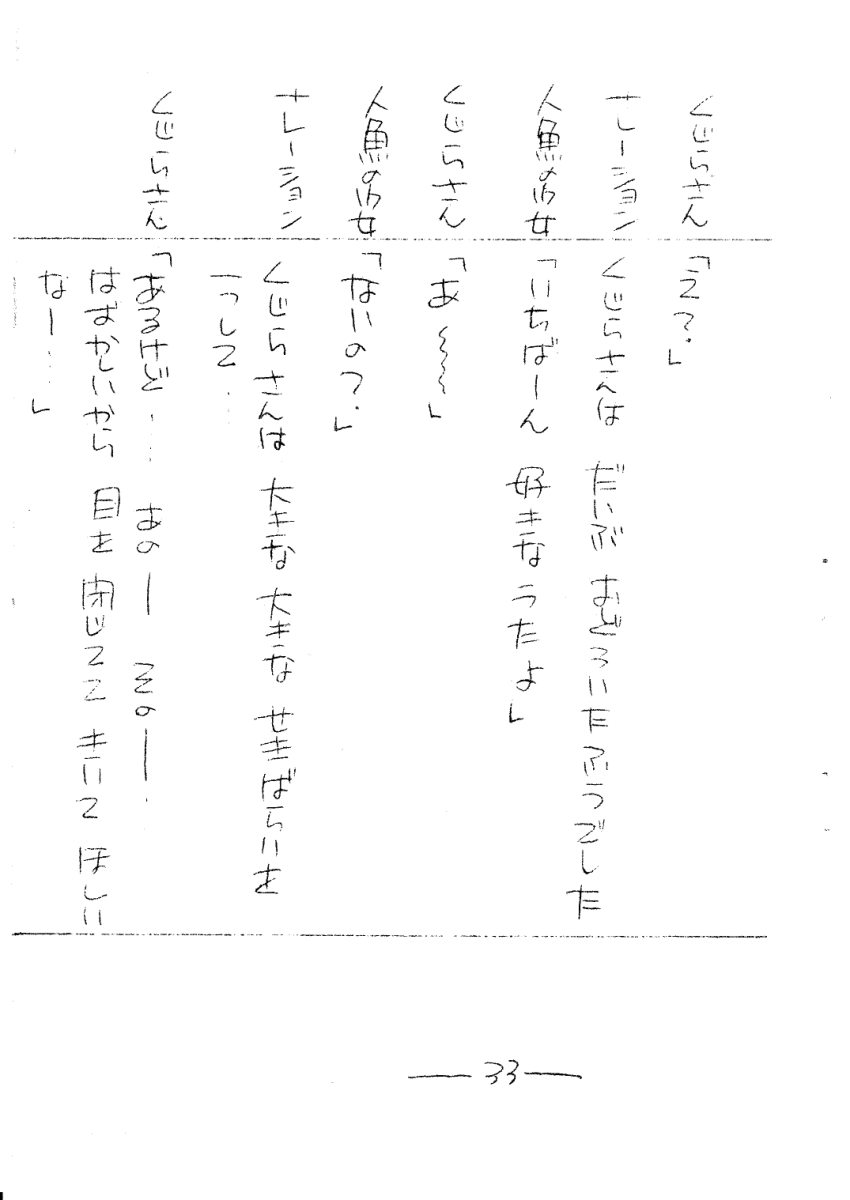 くじらさん 「え？」
ナレーション くじらさんは だいぶ おどろいたふうでした
人魚の少女 「いちばーん 好きな うたよ」
くじらさん 「あ～～～」
人魚の少女 「ないの？」
ナレーション くじらさんは 大きな 大きな せきばらいを
一つして‥
くじらさん 「あるけど‥‥ あのー そのー．
はずかしいから 目を 閉じてて きいて ほしい
なー‥‥」
—33—